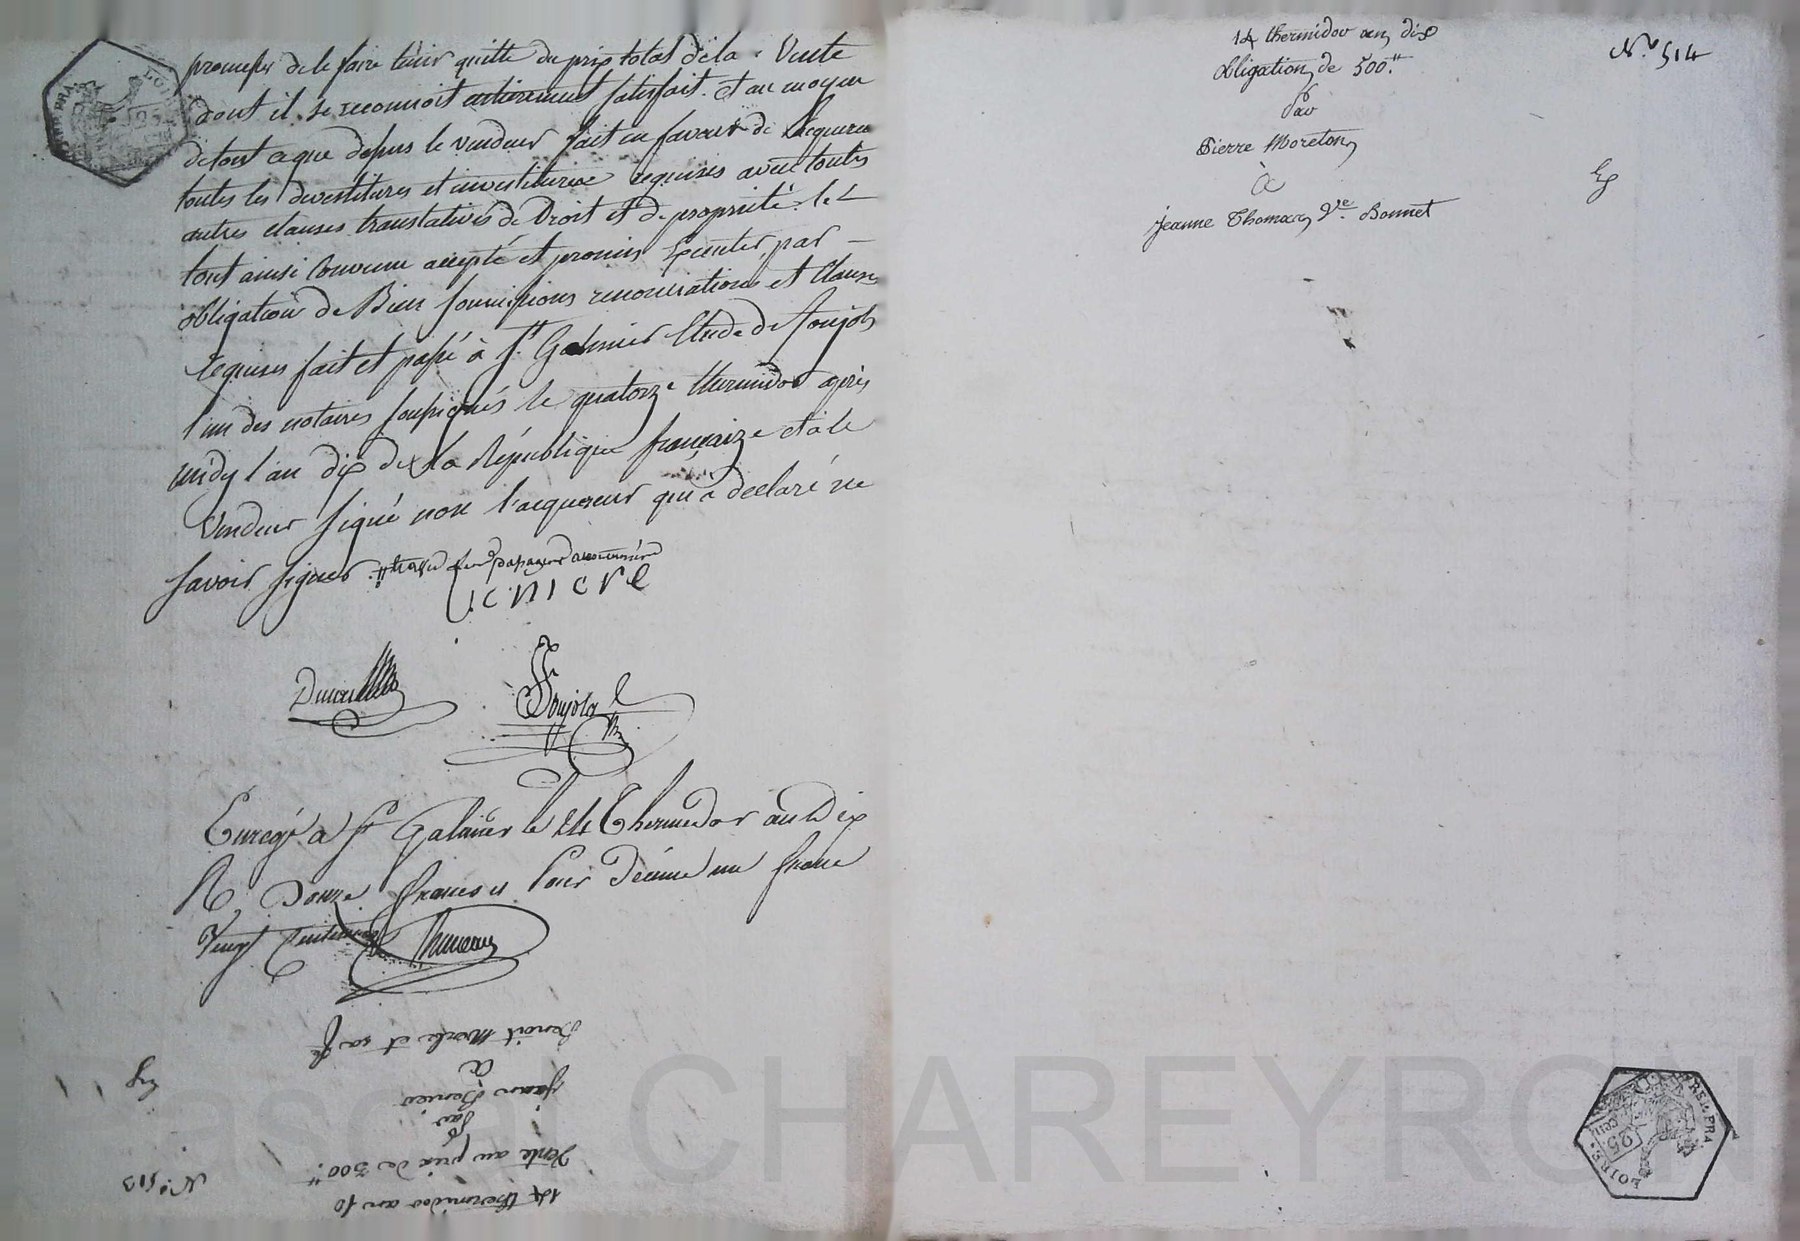 promesses de le faire tenir quitte du prix total de la Vente
dont il se reconnoit entierement satisfait. et au moyen
de tout ce que depuis le vendeur fait en faveur de l'acquereur
toutes les devestitures et investitures requises avec toutes
autres clauses translatives de Droit et de propriété. le
tout ainsi convenu accepté et promis executer, par
obligation de Biens soumissions renonciations et clauses
requises fait et passé à St. Galmier Etude de Soujol
l'un des notaires soussignés le quatorze thermidor après
midy l'an dix de la République française et a le
Vendeur signé non l'acquereur qui à declaré ne
savoir signer.
Soujol
Enregé a St Galmier le 24 Thermidor an Dix
R. Douze francs Pour Décime un franc
Vingt Centimes
14 thermidor an 10
N°. 513
Vente au prix de 300.#
Par
Jean
à
Benoit et sa fe
14 thermidor an dix
N°. 514
Obligation de 500.#
Par
Pierre Moreton
à
Jeanne Thomas Ve. Bonnet
25
LOIRE
Pascal CHAREYRON